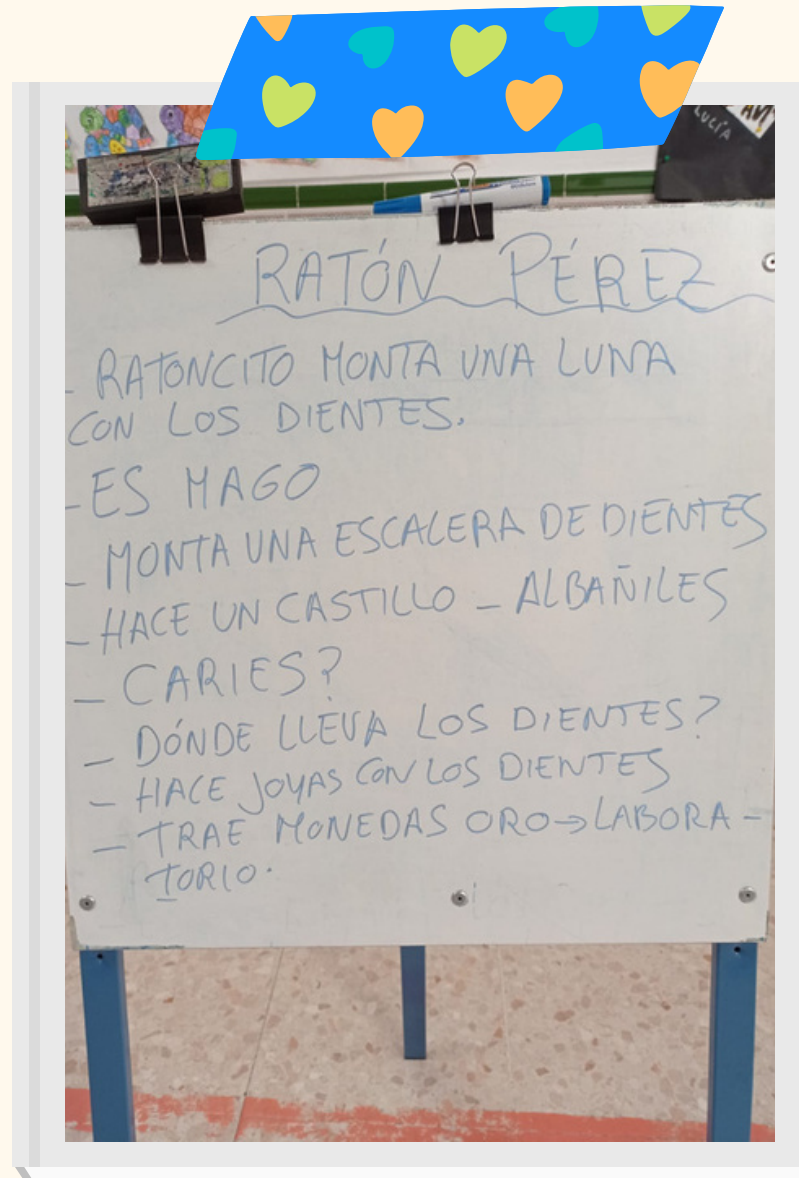 LUCÍA
RATÓN PÉREZ
- RATONCITO MONTA UNA LUNA
CON LOS DIENTES.
- ES MAGO
- MONTA UNA ESCALERA DE DIENTES
- HACE UN CASTILLO - ALBAÑILES
- CARIES?
- DÓNDE LLEVA LOS DIENTES?
- HACE JOYAS CON LOS DIENTES
- TRAE MONEDAS ORO → LABORA -
TORIO.